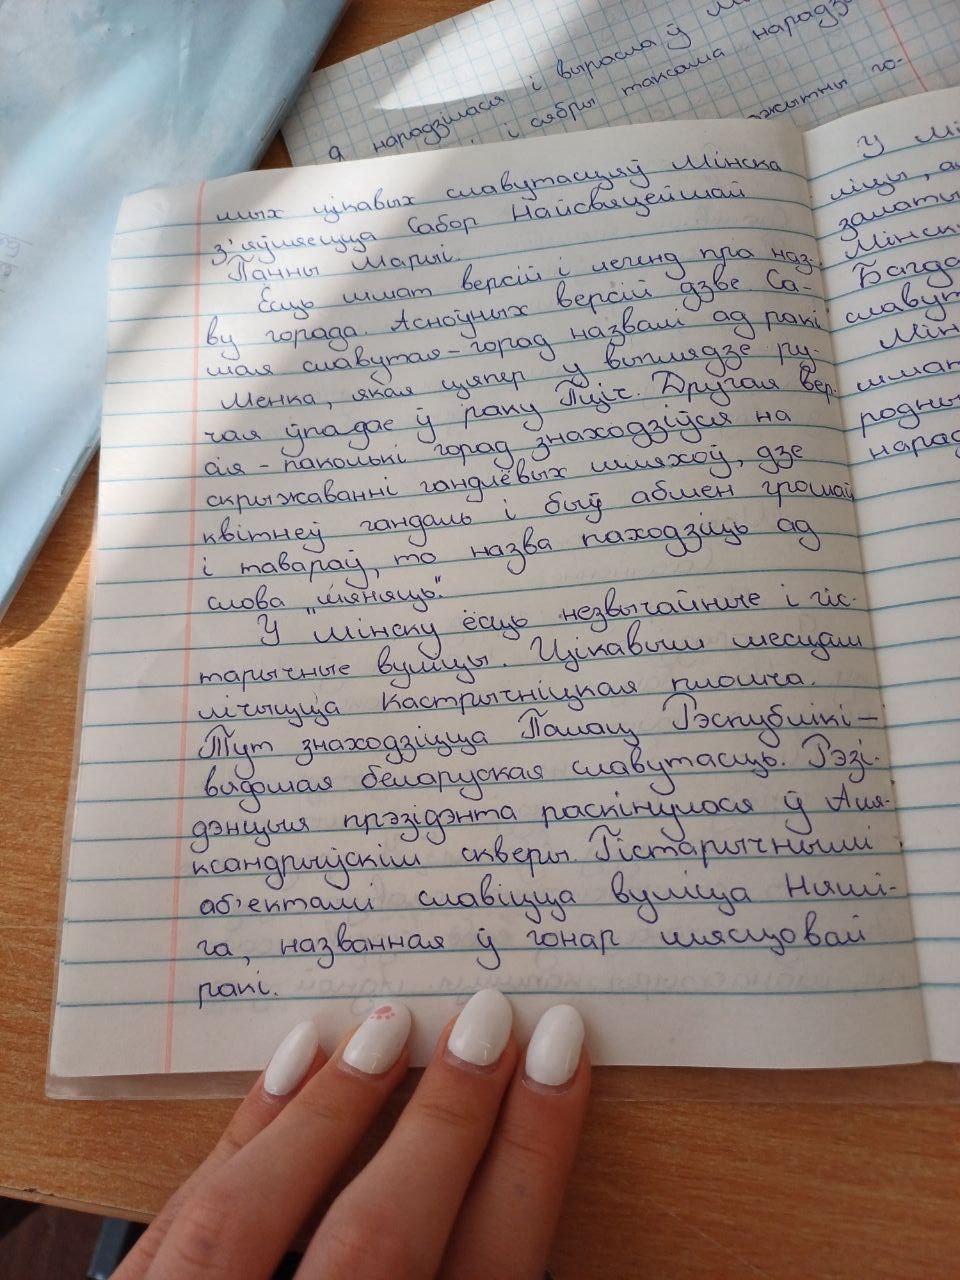 я нарадзілася і вырасла ў
і сябры таксама
мых цікавых славутасцяў Мінска
з'яўляецца Сабор Найсвяцейшай
Панны Марыі.
Ёсць шмат версій і легенд пра наз-
ву горада. Асноўных версій дзве. Са-
мая славутая - горад назвалі ад ракі
Менка, якая цяпер у выглядзе ру-
чая ўпадае ў раку Пціч. Другая вер-
сія - паколькі горад знаходзіўся на
скрыжаванні гандлёвых шляхоў, дзе
квітнеў гандаль і быў абмен грошай
і тавараў, то назва паходзіць ад
слова „мяняць".
У Мінску ёсць незвычайные і гіс-
тарычные вуліцы. Цікавым месцам
лічыцца Кастрычніцкая плошча.
Тут знаходзіцца Палац Рэспублікі -
вядомая беларуская славутасць. Рэзі-
дэнцыя прэзідэнта раскінулася ў Аля-
ксандрыўскім скверы. Гістарычнымі
аб'ектамі славіцца вуліца Нямі-
га, названная ў гонар мясцовай
ракі.
У
ліцы,
Мінск
Багда
славут
Мін
шмат
родны
нарад